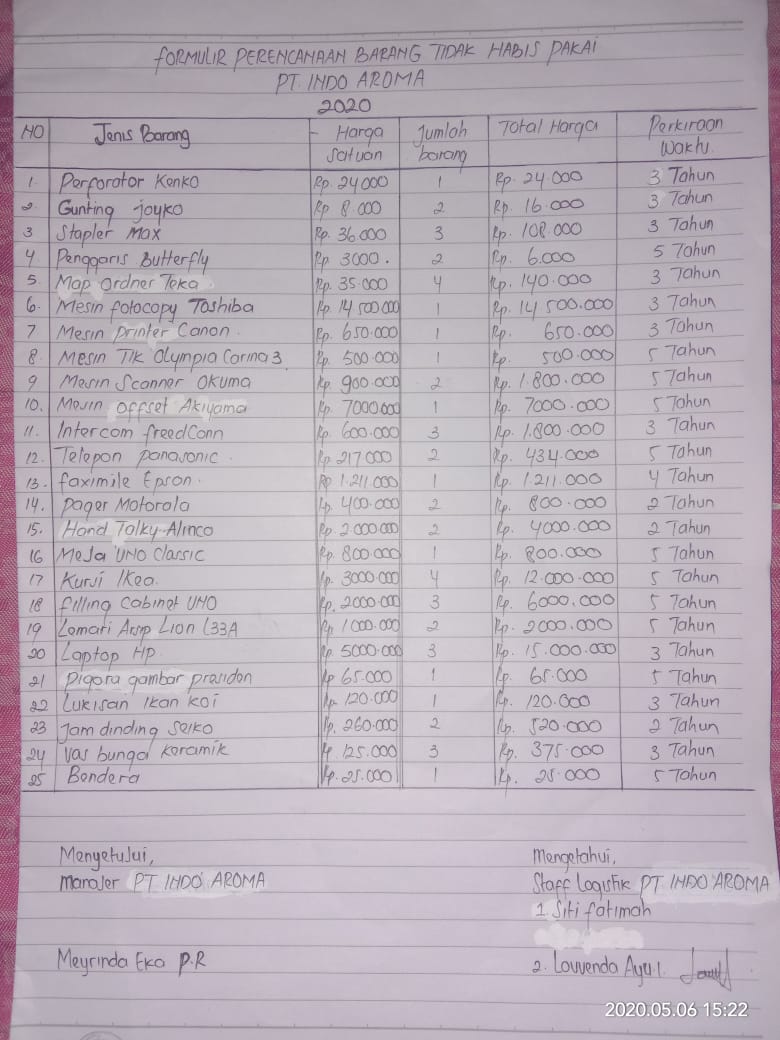 FORMULIR PERENCANAAN BARANG TIDAK HABIS PAKAI
PT. INDO AROMA
2020
NO Jenis Barang - Harga Satuan Jumlah barang Total Harga Perkiraan Waktu
1. Perforator Kenko Rp. 24000 1 Rp. 24.000 3 Tahun
2. Gunting joyko Rp 8.000 2 Rp. 16.000 3 Tahun
3 Stapler Max Rp. 36.000 3 Rp. 108.000 3 Tahun
4 Penggaris Butterfly Rp 3000. 2 Rp. 6.000 5 Tahun
5. Map Ordner Teka Rp. 35.000 4 Rp. 140.000 3 Tahun
6. Mesin fotocopy Toshiba Rp 14 500.000 1 Rp. 14 500.000 3 Tahun
7. Mesin printer Canon Rp. 650.000 1 Rp. 650.000 3 Tahun
8. Mesin Tik Olympia Carina 3 Rp. 500.000 1 Rp. 500.000 5 Tahun
9 Mesin Scanner OKUMA Rp. 900.000 2 Rp. 1.800.000 5 Tahun
10. Mesin offset Akiyama Rp. 7000.000 1 Rp. 7000.000 5 Tahun
11. Intercom freedConn Rp. 600.000 3 Rp. 1.800.000 3 Tahun
12. Telepon panasonic. Rp 217.000 2 Rp. 434.000 5 Tahun
13. faximile Epson. Rp 1.211.000 1 Rp. 1.211.000 4 Tahun
14. pager Motorola Rp. 400.000 2 Rp. 800.000 2 Tahun
15. Hand Talky Alinco Rp. 2.000.000 2 Rp. 4000.000 2 Tahun
16 Meja UNO Classic Rp. 800.000 1 Rp. 800.000 5 Tahun
17 Kursi Ikea. Rp. 3000.000 4 Rp. 12.000.000 5 Tahun
18 filling Cabinet UNO Rp. 2000.000 3 Rp. 6000.000 5 Tahun
19 Lemari Arsip Lion L33A Rp. 1000.000 2 Rp. 2000.000 5 Tahun
20 Laptop HP. Rp. 5000.000 3 Rp. 15.000.000 3 Tahun
21 Pigora gambar prasiden Rp 65.000 1 Rp. 65.000 5 Tahun
22 Lukisan Ikan koi Rp. 120.000 1 Rp. 120.000 3 Tahun
23 Jam dinding Seiko Rp. 260.000 2 Rp. 520.000 2 Tahun
24 Vas bunga keramik Rp. 125.000 3 Rp. 375.000 3 Tahun
25 Bendera Rp. 25.000 1 Rp. 25.000 5 Tahun
Menyetujui, Mengetahui,
Manajer PT INDO AROMA Staff Logistik PT INDO AROMA
1. Siti fatimah
Meyrinda Eka P.R 2. Louvenda Ayu.I.
2020.05.06 15:22